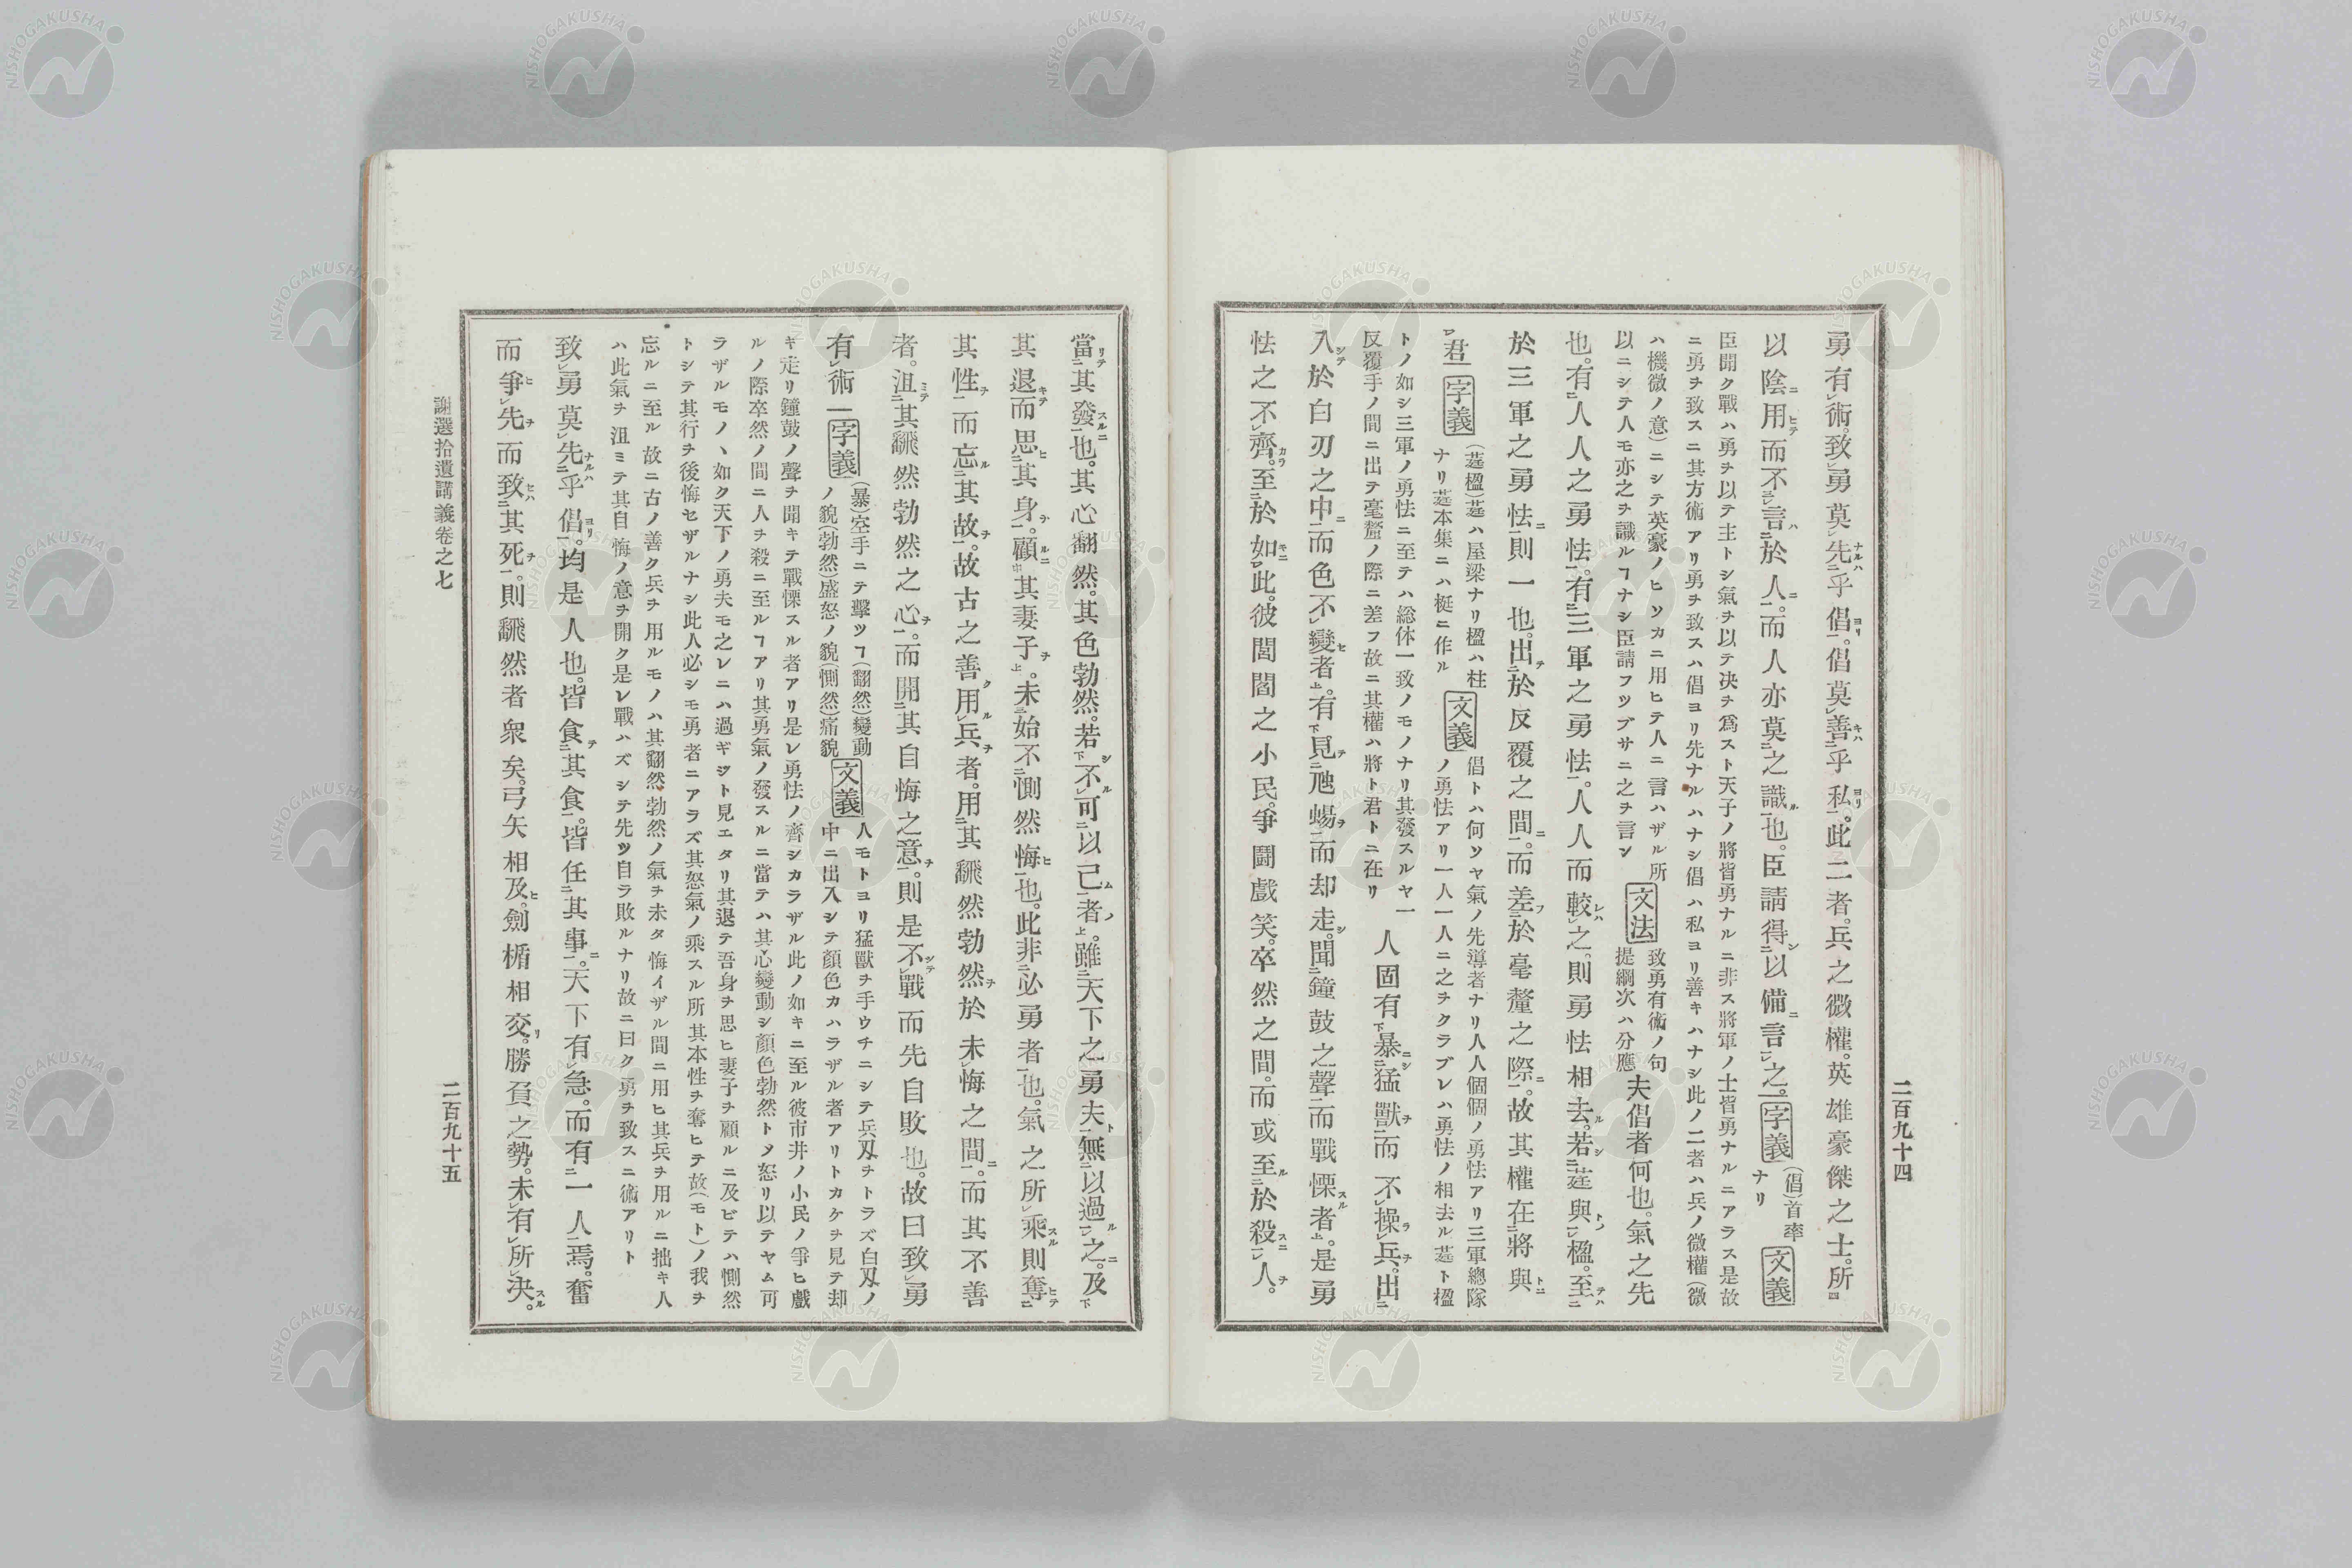 二百九十四
勇有術。致勇莫先乎倡。倡莫善乎私。此二者。兵之微權。英雄豪傑之士。所
以陰用而不言於人。而人亦莫之識也。臣請得以備言之。字義(倡)首率ナリ 文義
臣聞ク戰ハ勇ヲ以テ主トシ氣ヲ以テ决ヲ爲スト天子ノ將皆勇ナルニ非ス將軍ノ士皆勇ナルニアラス是故
ニ勇ヲ致スニ其方術アリ勇ヲ致スハ倡ヨリ先ナルハナシ倡ハ私ヨリ善キハナシ此ノ二者ハ兵ノ微權(微
ハ機微ノ意)ニシテ英豪ノヒソカニ用ヒテ人ニ言ハザル所
以ニシテ人モ亦之ヲ識ルヿナシ臣請フツブサニ之ヲ言ン
文法 致勇有術ノ句提綱次ハ分應 夫倡者何也。氣之先
也。有人人之勇怯。有三軍之勇怯。人人而較之。則勇怯相去。若莛與楹。至
於三軍之勇怯則一也。出於反覆之間。而差於毫釐之際。故其權在將與
君 字義 (莛楹)莛ハ屋梁ナリ楹ハ柱ナリ莛本集ニハ梃ニ作ル 文義 倡トハ何ソヤ氣ノ先導者ナリ人人個個ノ勇怯アリ三軍總隊
ノ勇怯アリ一人一人ニ之ヲクラブレハ勇怯ノ相去ル莛ト楹
トノ如シ三軍ノ勇怯ニ至テハ総休一致ノモノナリ其發スルヤ一
反覆手ノ間ニ出テ毫釐ノ際ニ差フ故ニ其權ハ將ト君トニ在リ
人固有暴猛獸而不操兵。出
入於白刃之中而色不變者。有見虺蜴而却走。聞鐘鼓之聲而戰慄者。是勇
怯之不齊。至於如此。彼閭閻之小民。爭鬪戲笑。卒然之間。而或至於殺人。
當其發也。其心翻然。其色勃然。若不可以己者。雖天下之勇夫無以過之。及
其退而思其身。顧其妻子。未始不惻然悔也。此非必勇者也。氣之所乘則奪
其性而忘其故。故古之善用兵者。用其飜然勃然於未悔之間。而其不善
者。沮其飜然勃然之心。而開其自悔之意。則是不戰而先自敗也。故曰致勇
有術 字義 (暴)空手ニテ擊ツヿ(翻然)變動ノ貌(勃然)盛怒ノ貌(惻然)痛貌 文義 人モトヨリ猛獸ヲ手ウチニシテ兵刄ヲトラズ白刄ノ
中ニ出入シテ顏色カハラザル者アリトカケヲ見テ却
キ走リ鐘鼓ノ聲ヲ聞キテ戰慄スル者アリ是レ勇怯ノ齊シカラザル此ノ如キニ至ル彼市井ノ小民ノ爭ヒ戲
ルノ際卒然ノ間ニ人ヲ殺ニ至ルヿアリ其勇氣ノ發スルニ當テハ其心變動シ顏色勃然トメ怒リ以テヤム可
ラザルモノヽ如ク天下ノ勇夫モ之レニハ過ギジト見エタリ其退テ吾身ヲ思ヒ妻子ヲ顧ルニ及ビテハ惻然
トシテ其行ヲ後悔セザルナシ此人必シモ勇者ニアラズ其怒氣ノ乘スル所其本性ヲ奪ヒテ故(モト)ノ我ヲ
忘ルニ至ル故ニ古ノ善ク兵ヲ用ルモノハ其翻然勃然ノ氣ヲ未タ悔イザル間ニ用ヒ其兵ヲ用ルニ拙キ人
ハ此氣ヲ沮ミテ其自悔ノ意ヲ開ク是レ戰ハズシテ先ツ自ラ敗ルナリ故ニ曰ク勇ヲ致スニ術アリト
致勇莫先乎倡。均是人也。皆食其食。皆任其事。天下有急。而有一人焉。奮
而爭先而致其死。則飜然者衆矣。弓矢相及。劍楯相交。勝負之勢。未有所决。
謝選拾遺講義卷之七
二百九十五